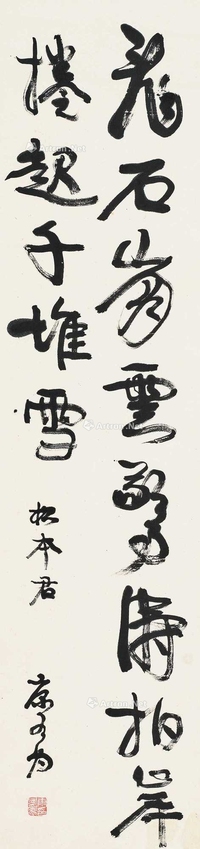 亂石崩雲驚濤拍岸
捲起千堆雪
松本君
康有為